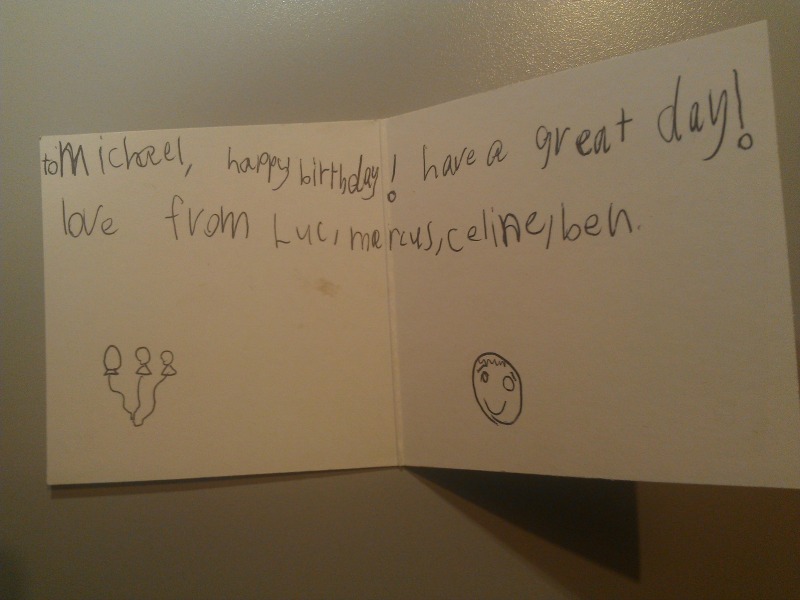 to Michael, happy birthday! have a great day!
love from Luc, marcus, celine, ben.